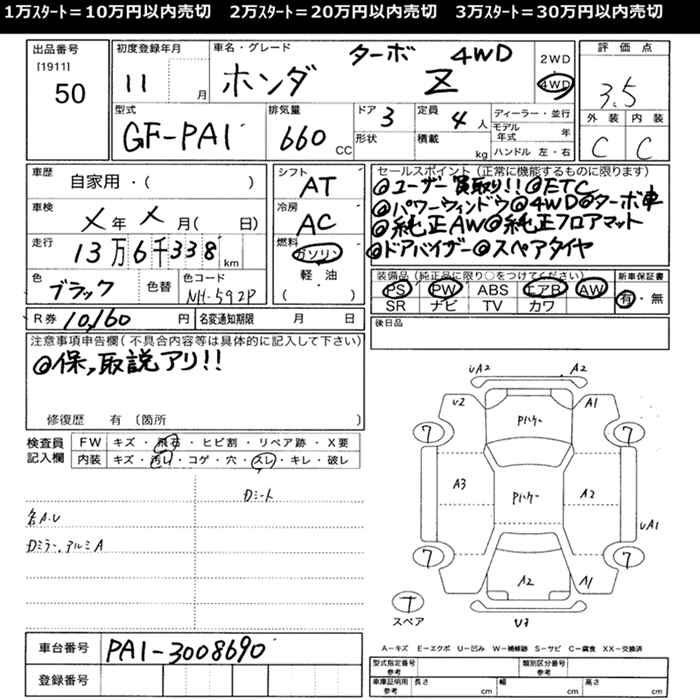 1万ｽﾀｰﾄ＝10万円以内売切　2万ｽﾀｰﾄ＝20万円以内売切　3万ｽﾀｰﾄ＝30万円以内売切
出品番号
[1911]
50
初度登録年月
11 月
車名・グレード
ターボ 4WD
ホンダ Z
2WD
4WD
評価点
3.5
外装 内装
C C
型式
GF-PA1
排気量
660 CC
ドア 3
形状
定員 4 人
積載 kg
ディーラー・並行
モデル年式 年
ハンドル 左・右
車歴
自家用・( )
車検
メ年 メ月( 日)
走行
13万6千338 km
色
ブラック
色替
色コード
NH-592P
シフト
AT
冷房
AC
燃料
ガソリン
軽油
( )
セールスポイント(正常に機能するものに限ります)
◎ユーザー買取り!!◎ETC
◎パワーウィンドウ◎4WD◎ターボ車
◎純正AW◎純正フロアマット
◎ドアバイザー◎スペアタイヤ
装備品(純正品に限り○をつけてください)
PS PW ABS エアB AW
SR ナビ TV カワ
新車保証書
有・無
R券 10,160 円
名変通知期限 月 日
後日品
注意事項申告欄(不具合内容等は具体的に記入して下さい)
◎保,取説アリ!!
修復歴 有 (箇所 )
検査員記入欄
FW キズ・飛石・ヒビ割・リペア跡・X要
内装 キズ・汚レ・コゲ・穴・スレ・キレ・破レ
Dミート
名A.U
Dミラー、アルミA
UA2 A2
U2 A1
Pハケー
7 7
A3 Pハケー A2
UA1
7 7
A2 A1
T
スペア
U3
A－キズ E－エクボ U－凹み W－補修跡 S－サビ C－腐食 XX－交換済
車台番号 PA1-3008690
登録番号
型式指定番号
参考
類別区分番号
参考
車庫証明用
参考
長さ cm 幅 cm 高さ cm